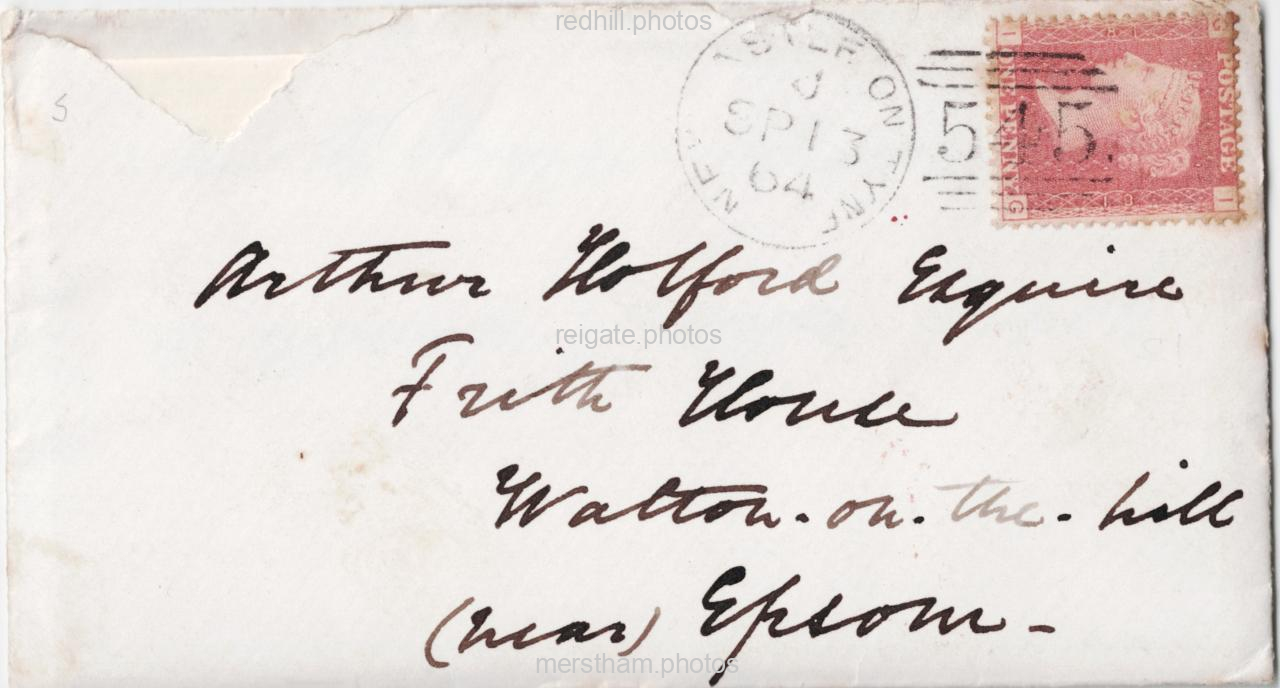 redhill.photos
NEWCASTLE ON TYNE
J
SP 13
64
545.
POSTAGE
ONE PENNY
I G
G I
181
Arthur Holford Esquire
reigate.photos
Frith House
Walton-on-the-hill
(near) Epsom -
merstham.photos
S